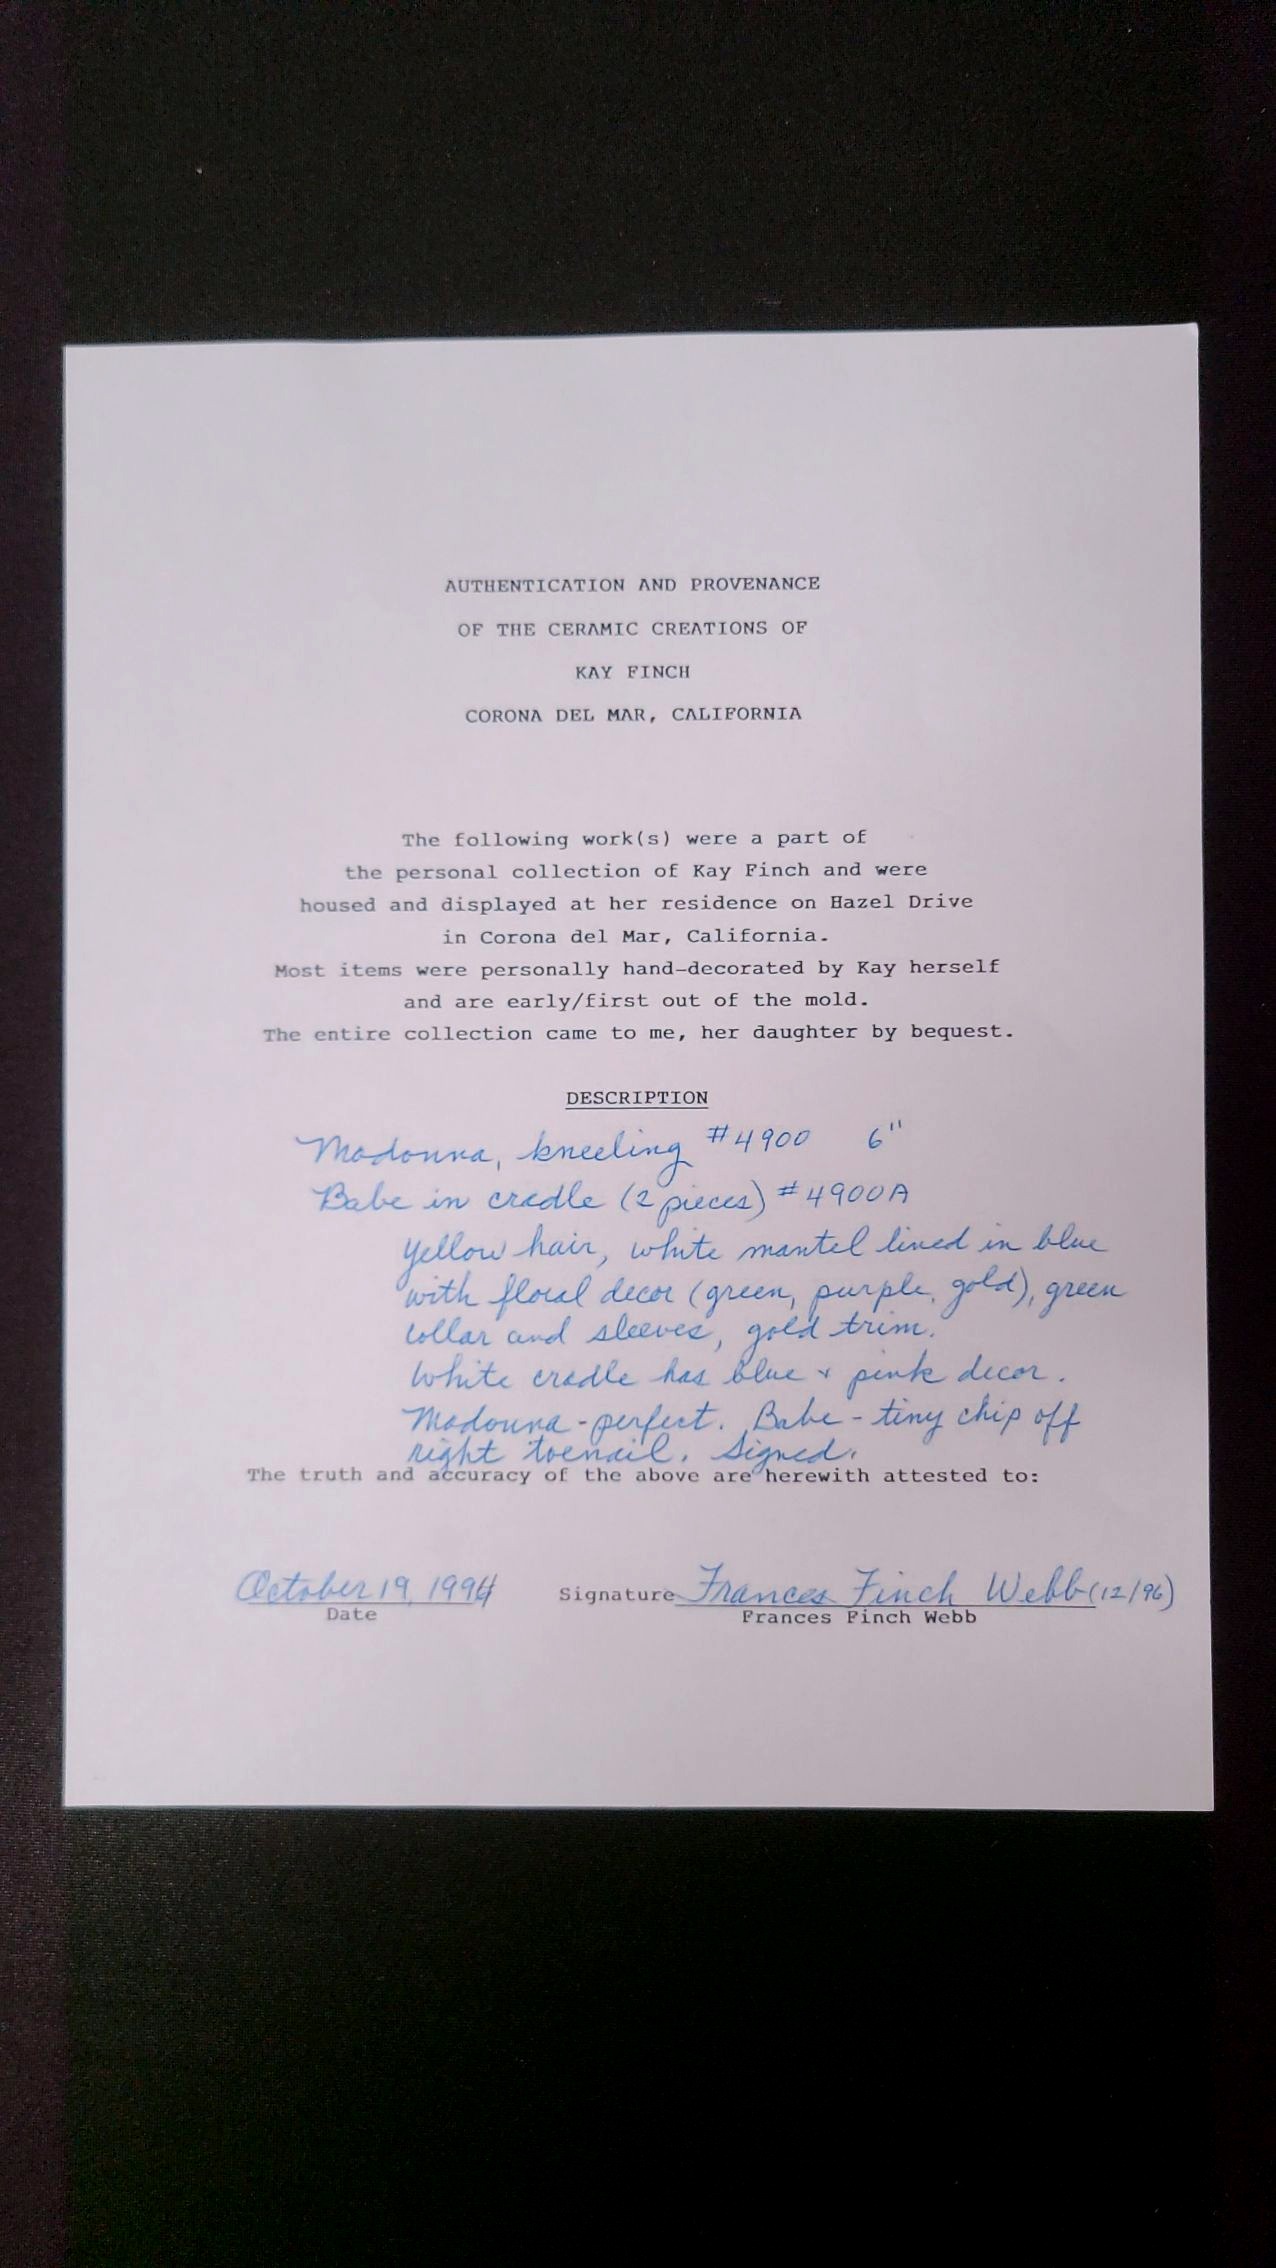 AUTHENTICATION AND PROVENANCE
OF THE CERAMIC CREATIONS OF
KAY FINCH
CORONA DEL MAR, CALIFORNIA
The following work(s) were a part of
the personal collection of Kay Finch and were
housed and displayed at her residence on Hazel Drive
in Corona del Mar, California.
Most items were personally hand-decorated by Kay herself
and are early/first out of the mold.
The entire collection came to me, her daughter by bequest.
DESCRIPTION
Madonna, kneeling #4900 6"
Babe in cradle (2 pieces) #4900A
Yellow hair, white mantel lined in blue
with floral decor (green, purple, gold), green
collar and sleeves, gold trim.
White cradle has blue + pink decor.
Madonna - perfect. Babe - tiny chip off
right toenail. Signed.
The truth and accuracy of the above are herewith attested to:
October 19, 1994 Signature Frances Finch Webb (12/96)
Date Frances Finch Webb